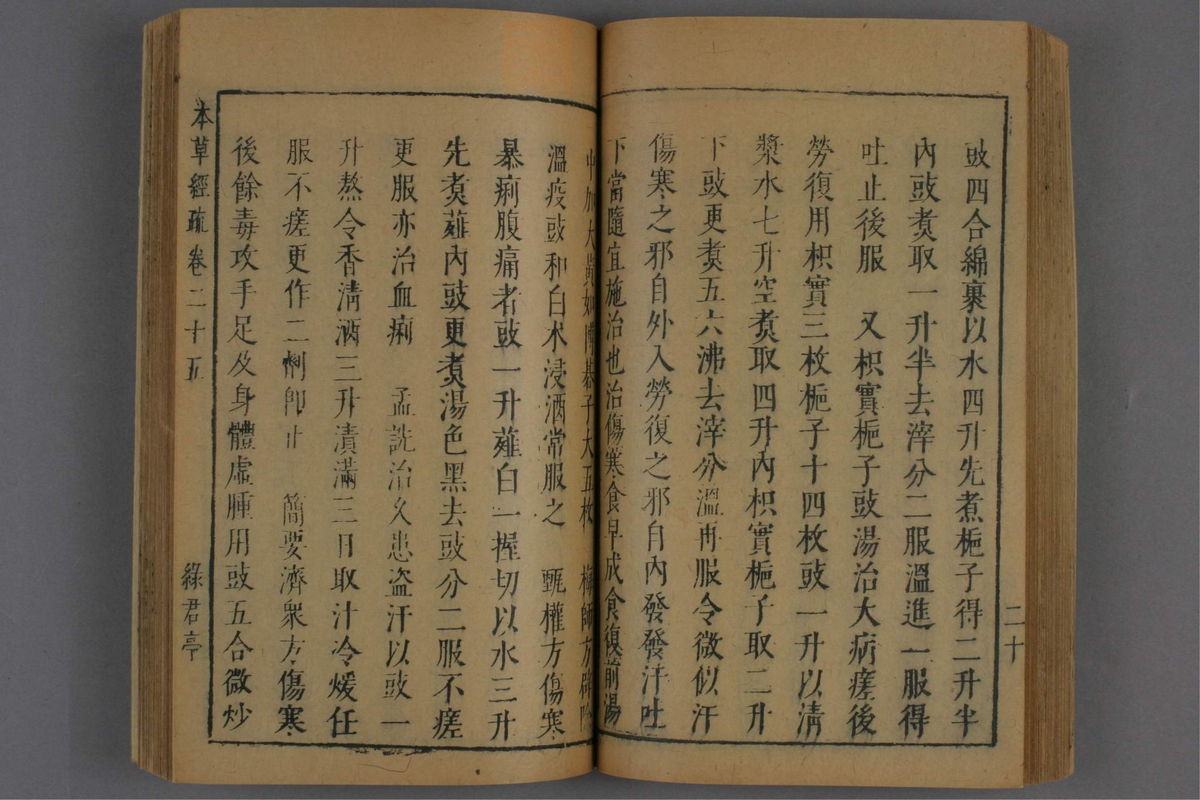 豉四合綿裹以水四升先煮梔子得二升半
內豉煑取一升半去滓分二服溫進一服得
吐止後服　又枳實梔子豉湯治大病瘥後
勞復用枳實三枚梔子十四枚豉一升以清
漿水七升空煑取四升內枳實梔子取二升
下豉更煑五六沸去滓分溫再服令微似汗
傷寒之邪自外入勞復之邪自內發發汗吐
下當隨宜施治也治傷寒食早成食復前湯
二十
中加大黃如博碁子大五枚　梅師方辟除
溫疫豉和白朮浸酒常服之　甄權方傷寒
暴痢腹痛者豉一升薤白一握切以水三升
先煑薤內豉更煑湯色黑去豉分二服不瘥
更服亦治血痢　孟詵治久患盜汗以豉一
升熬令香清酒三升漬滿三日取汁冷煖任
服不瘥更作二劑卽止　簡要濟衆方傷寒
後餘毒攻手足及身體虛腫用豉五合微炒
本草經疏卷二十五　綠君亭